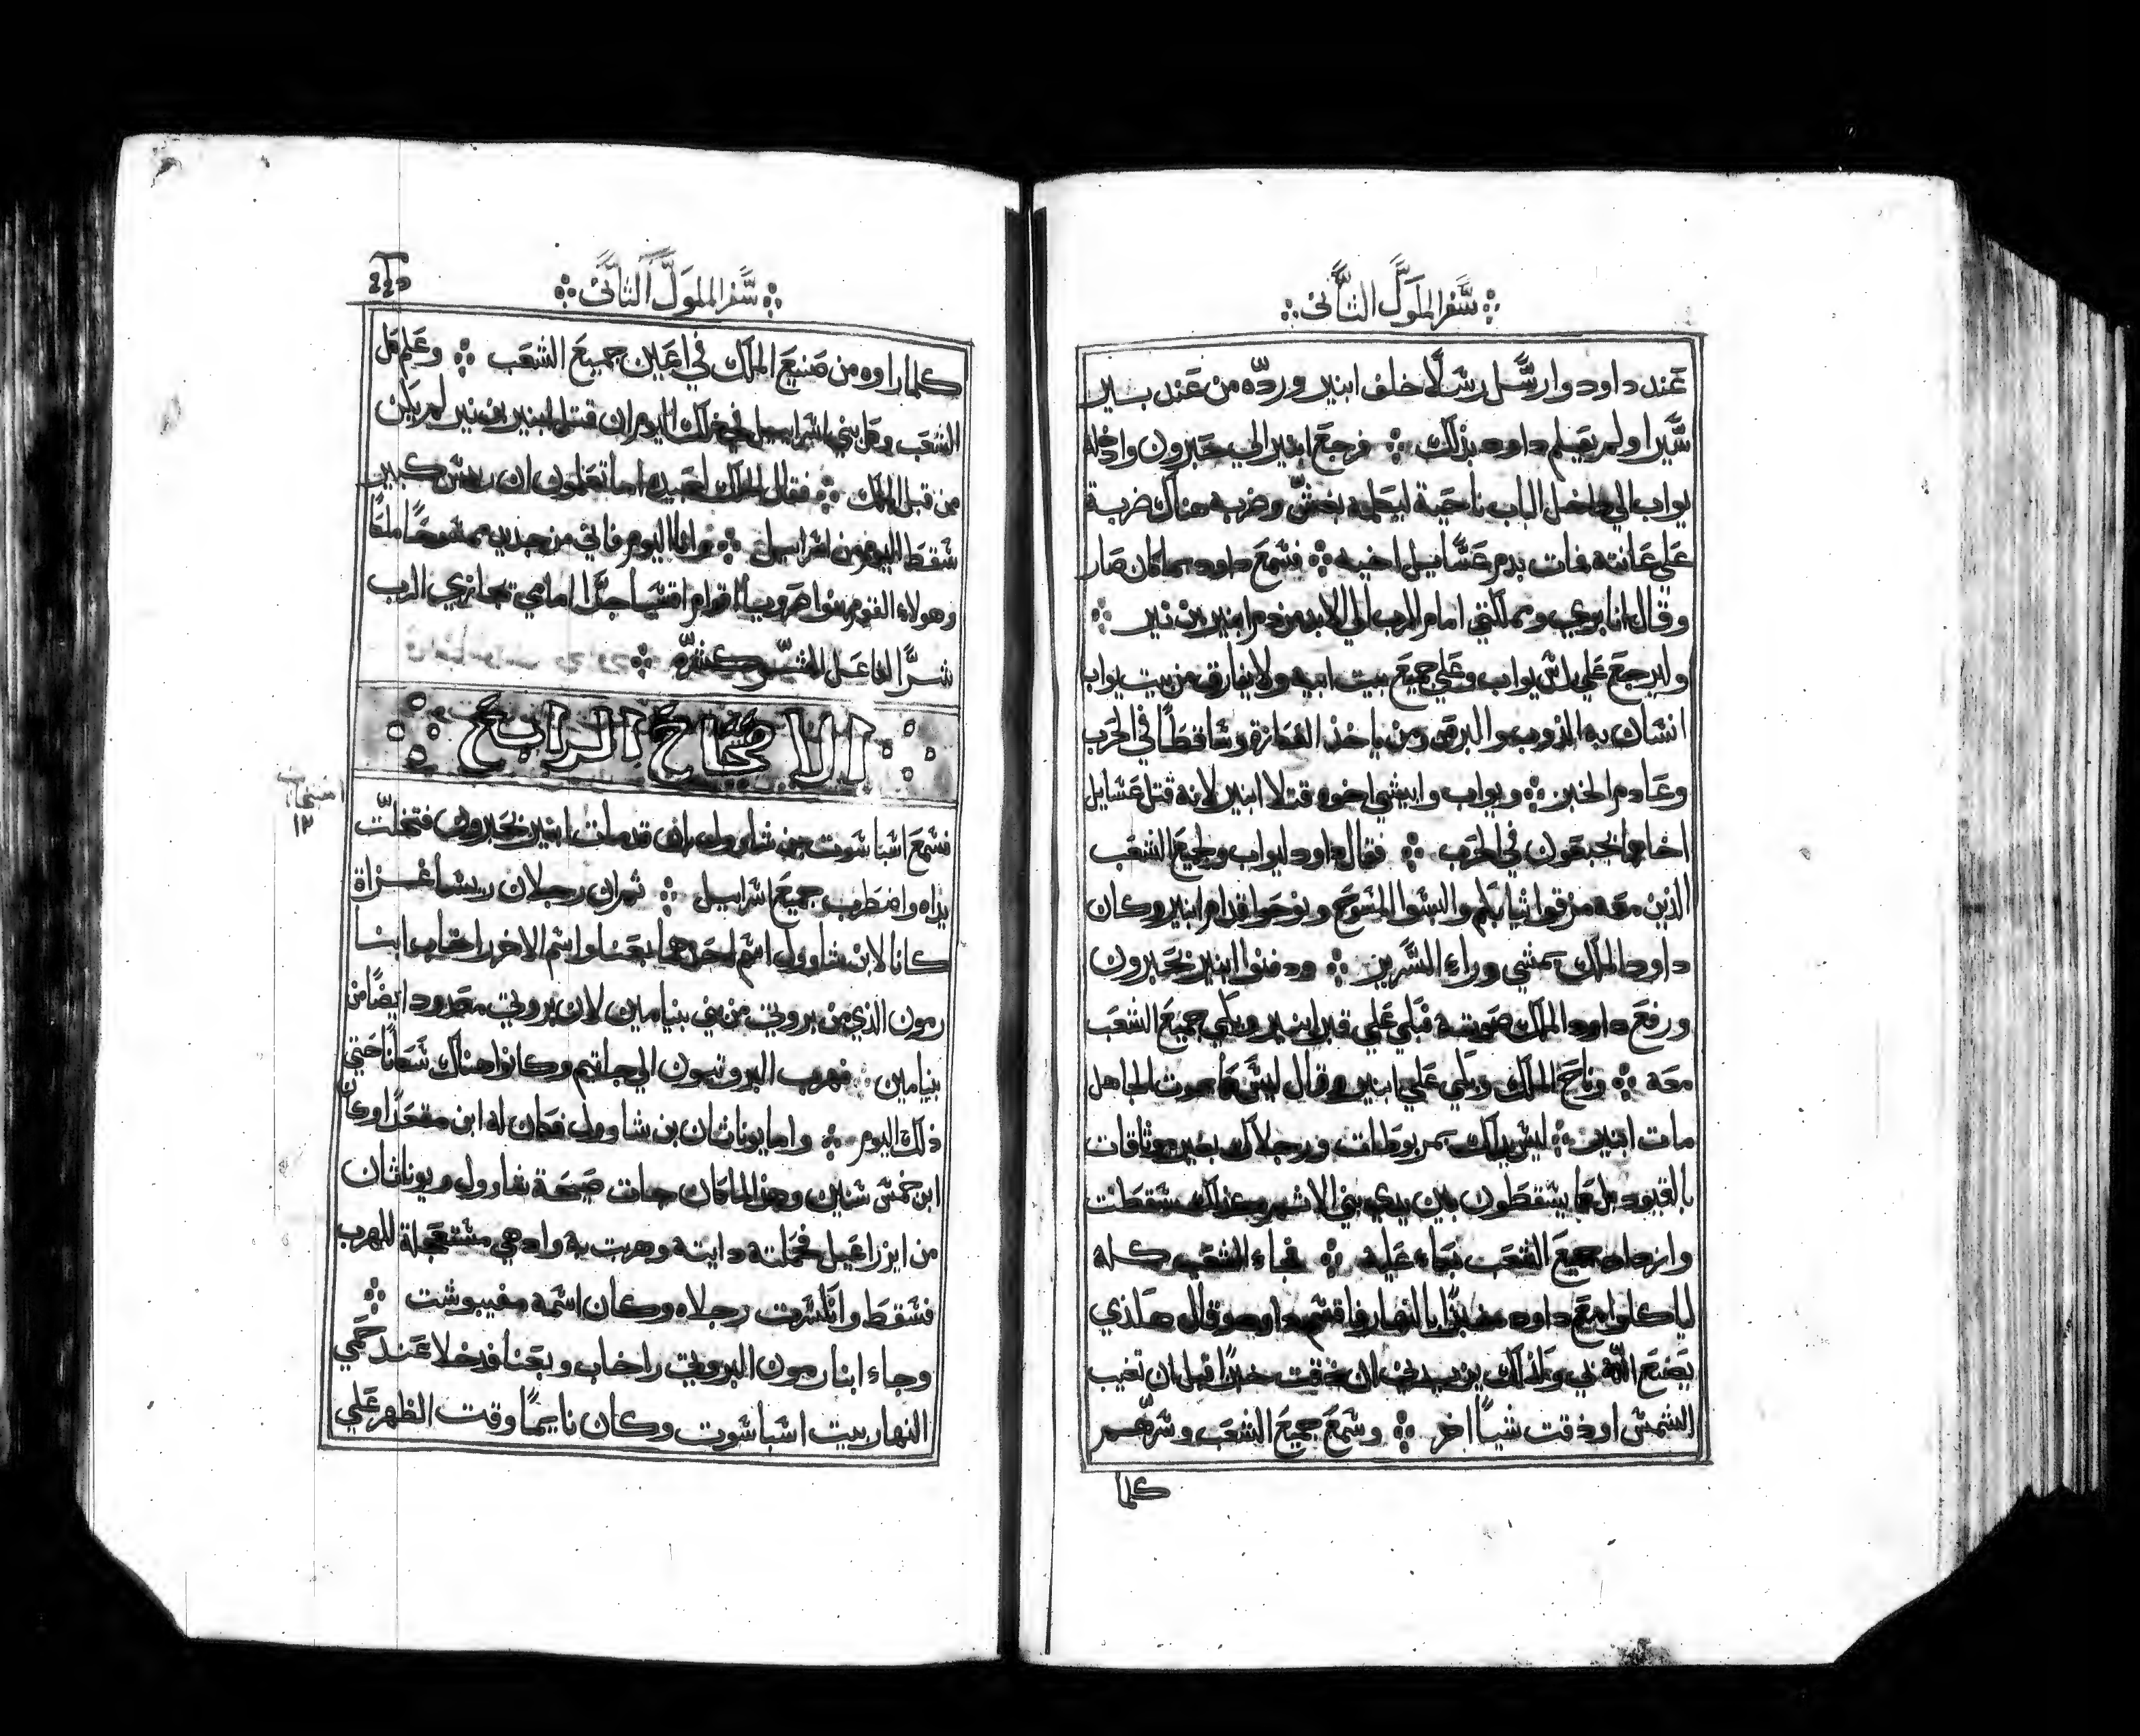 سفر الملوك الثاني
عند داود وارسل رسلًا خلف ابنير وردّه من عند بير
سيرا ولم يعلم داود بذلك فرجع ابنير الي حبرون واخذه
يواب الي داخل الباب ناحية ليكلمه بغش وضربه هناك ضربة
علي عانته فمات بدم عسايل اخيه فسمع داود بما كان صار
وقال انا بري ومملكتي امام الرب الي الابد من دم ابنير بن نير
وليرجع علي راس يواب وعلي جميع بيت ابيه ولا يفارق من بيت يواب
انسان به الذوب والبرص ومن ياخذ العكازة وساقطًا في الحرب
وعادم الخبز ويواب وابيشي اخوه قتلا ابنير لانه قتل عسايل
اخاهم الجبعون في الحرب فقال داود ليواب ولجميع الشعب
الذين معه مزقوا ثيابكم والبسوا المسوح ونوحوا قدام ابنير وكان
داود الملك يمشي وراء السرير ودفنوا ابنير بحبرون
ورفع داود الملك صوته فبكي علي قبر ابنير وبكي جميع الشعب
معه وناح الملك وبكي علي ابنير وقال ليس كموت الجاهل
مات ابنير ليس يداك بمربوطات ورجلاك بغير موثقات
بالقيود بل كما يسقطون بين يدي بني الاثم كذلك سقطت
وازداد جميع الشعب بكاء عليه فجاء الشعب كله
لياكلوا مع داود خبزًا بالنهار فاقسم داود وقال هكذي
يصنع الله بي وكذلك يزيدني ان ذقت خبزًا قبل ان تغيب
الشمس او ذقت شياً اخر وسمع جميع الشعب وسرّهم
كلما
سفر الملوك الثاني
كلما راوه من صنيع الملك في اعين جميع الشعب وعلم كل
الشعب وكل بني اسراييل في ذلك اليوم ان قتل ابنير بن نير لم يكن
من قبل الملك فقال الملك لعبيده اما تعلمون ان ريس كبير
سقط اليوم من اسراييل وانا اليوم فاني من جديد ممسوحًا ملكًا
وهولاء القوم بنوا صرويا اقوام اقسيا جدًا امامي تجازي الرب
شرًّا الفاعل الشر كشرّه
الاصحاح الرابع
فسمع اسباشوت بن شاوول بان قد مات ابنير بحبرون فتخلّت
يداه واضطرب جميع اسراييل ثم ان رجلان ريسا غزاة
كانا لابن شاوول اسم احدهما بعنا واسم الاخر راخاب ابنا
رمون الذي من بروتي من بني بنيامين لان بروتي معدود ايضًا من
بنيامين فهرب البروتيون الي جاتيم وكانوا هناك سكانًا حتي
ذلك اليوم واما يوناثان بن شاوول فكان له ابن مقعدًا وكان
ابن خمس سنين وهذا لما كان جات صيحة شاوول ويوناثان
من ايزراعيل فحملته دايته وهربت به واذ هي مستعجلة للهرب
فسقط وانكسرت رجلاه وكان اسمه مفيبوشت
وجاء ابنا رمون البروتي راخاب وبعنا فدخلا عند حمي
النهار بيت اسباشوت وكان نايمًا وقت الظهر علي
١٢